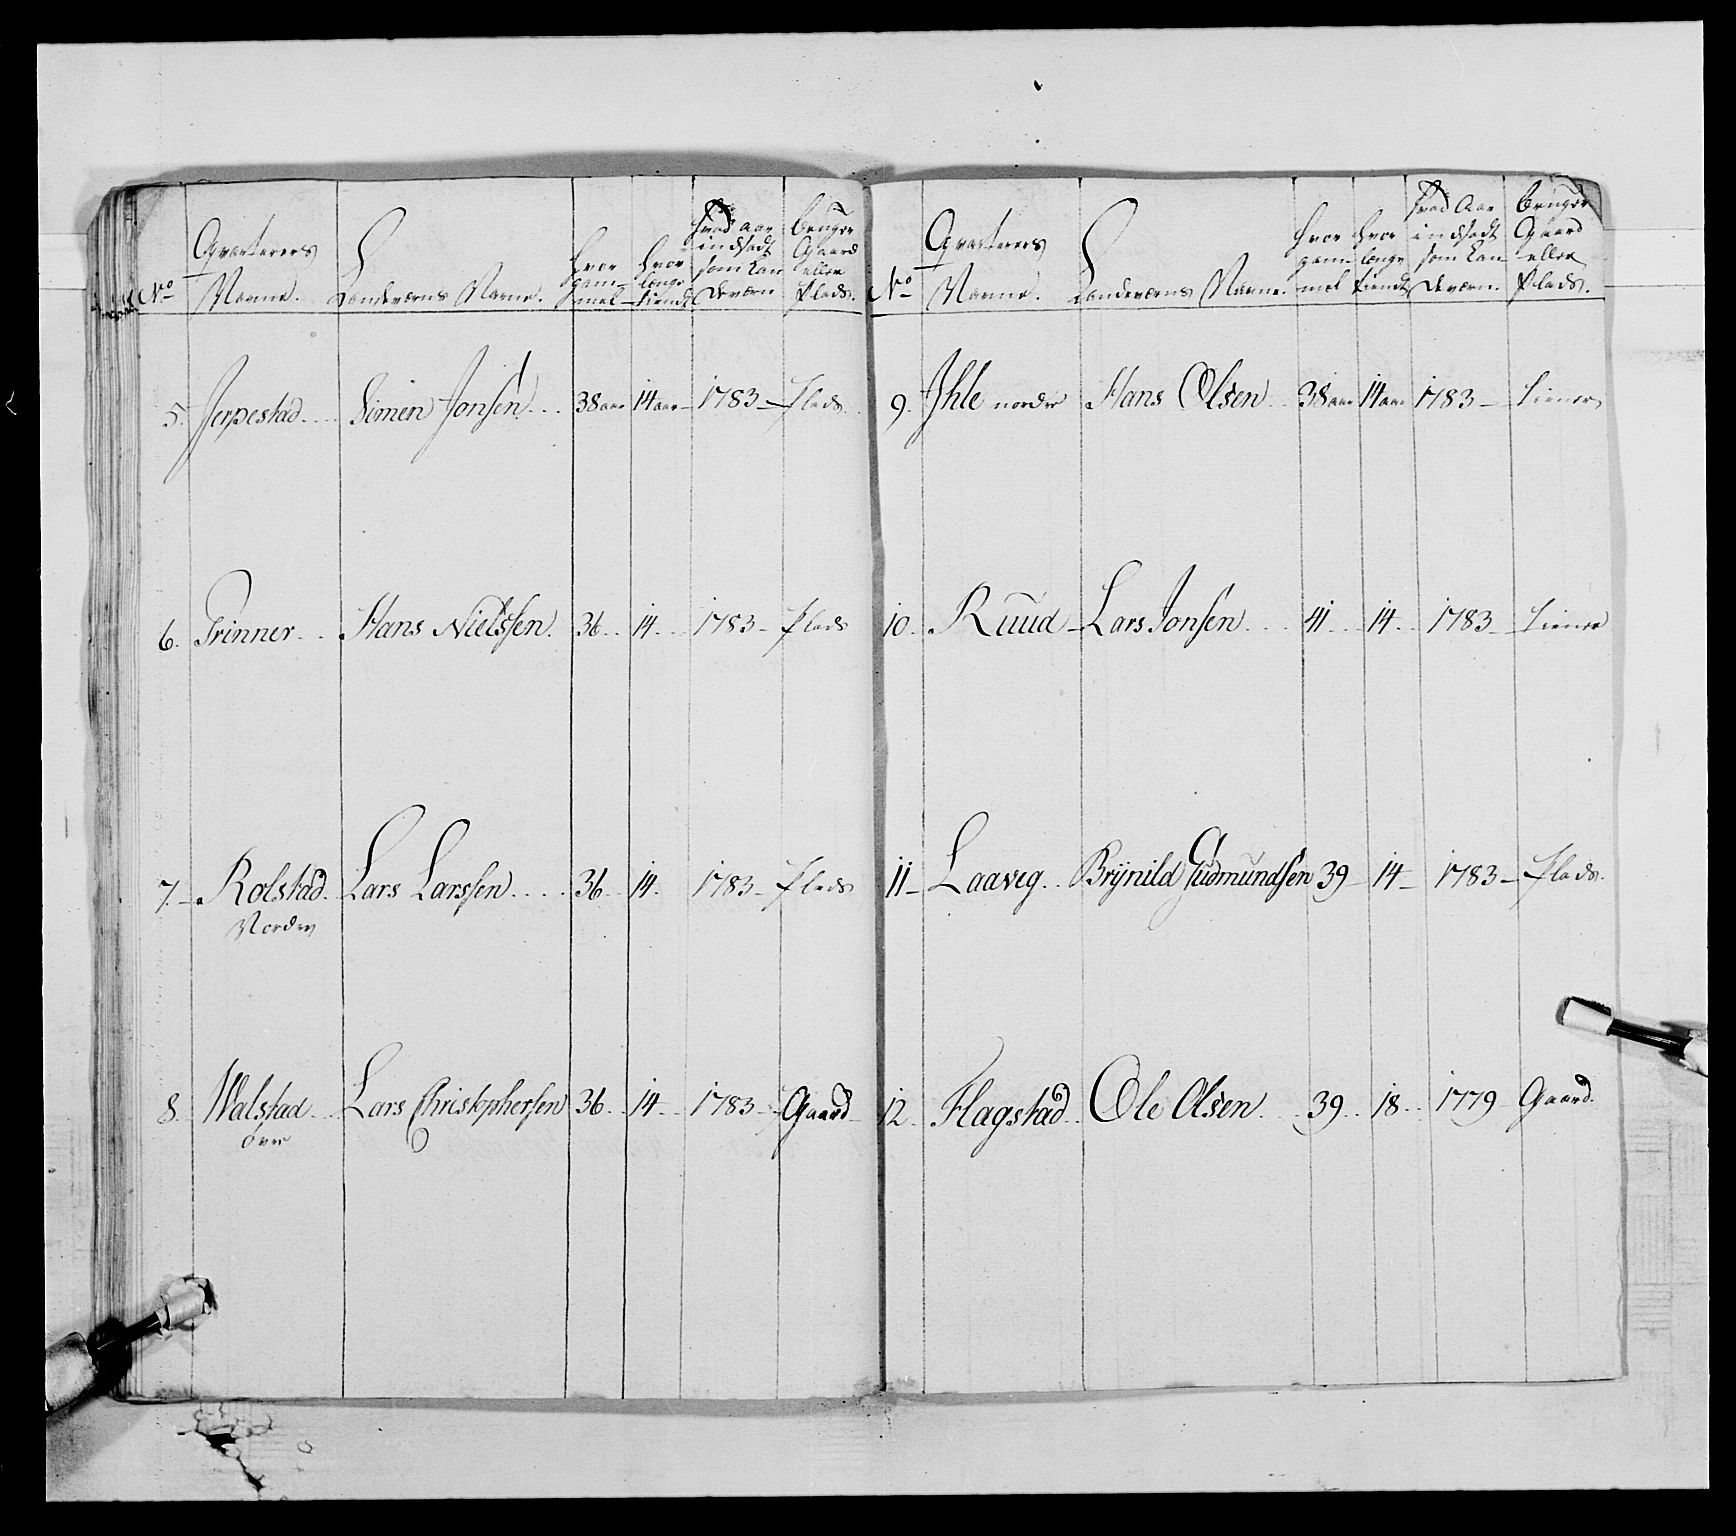 No
Qvarterers Navne.
Landeværns Navne.
hvor gam- mel
hvor længe tiendt
hvad aar indsadt som Lan deværn
bruger Gaard eller Plads.
5. Jerpestad... Simen Jonsen... 38 aar 14 aar - 1783 - Plads
6. Trinner... Hans Nielssen. 36.. 14... 1783 - Plads
7.- Rolstad. Lars Larssen.... 36.. 14. 1783 - Plads
Nordre
8. Walstad.. Lars Christophersen 36.. 14.. 1783 - Gaard
övre
No
Qvarterers Navne.
Landeværns Navne.
hvor gam- mel
hvor længe tiendt
hvad Aar indsadt som Lan deværn.
bruger Gaard eller Plads.
9. Ihle nordre Hans Olsen.. 38 aar 14 aar 1783 - tiener
10. Ruud - Lars Jonsen.... 41... 14.. 1783 - tiener
11 - Laaveg.. Brÿnild Gudmundsen 39 - 14 - 1783 - Plads.
12. Flagstad.. Ole Olsen.. 39.. 18.. 1779 Gaard.